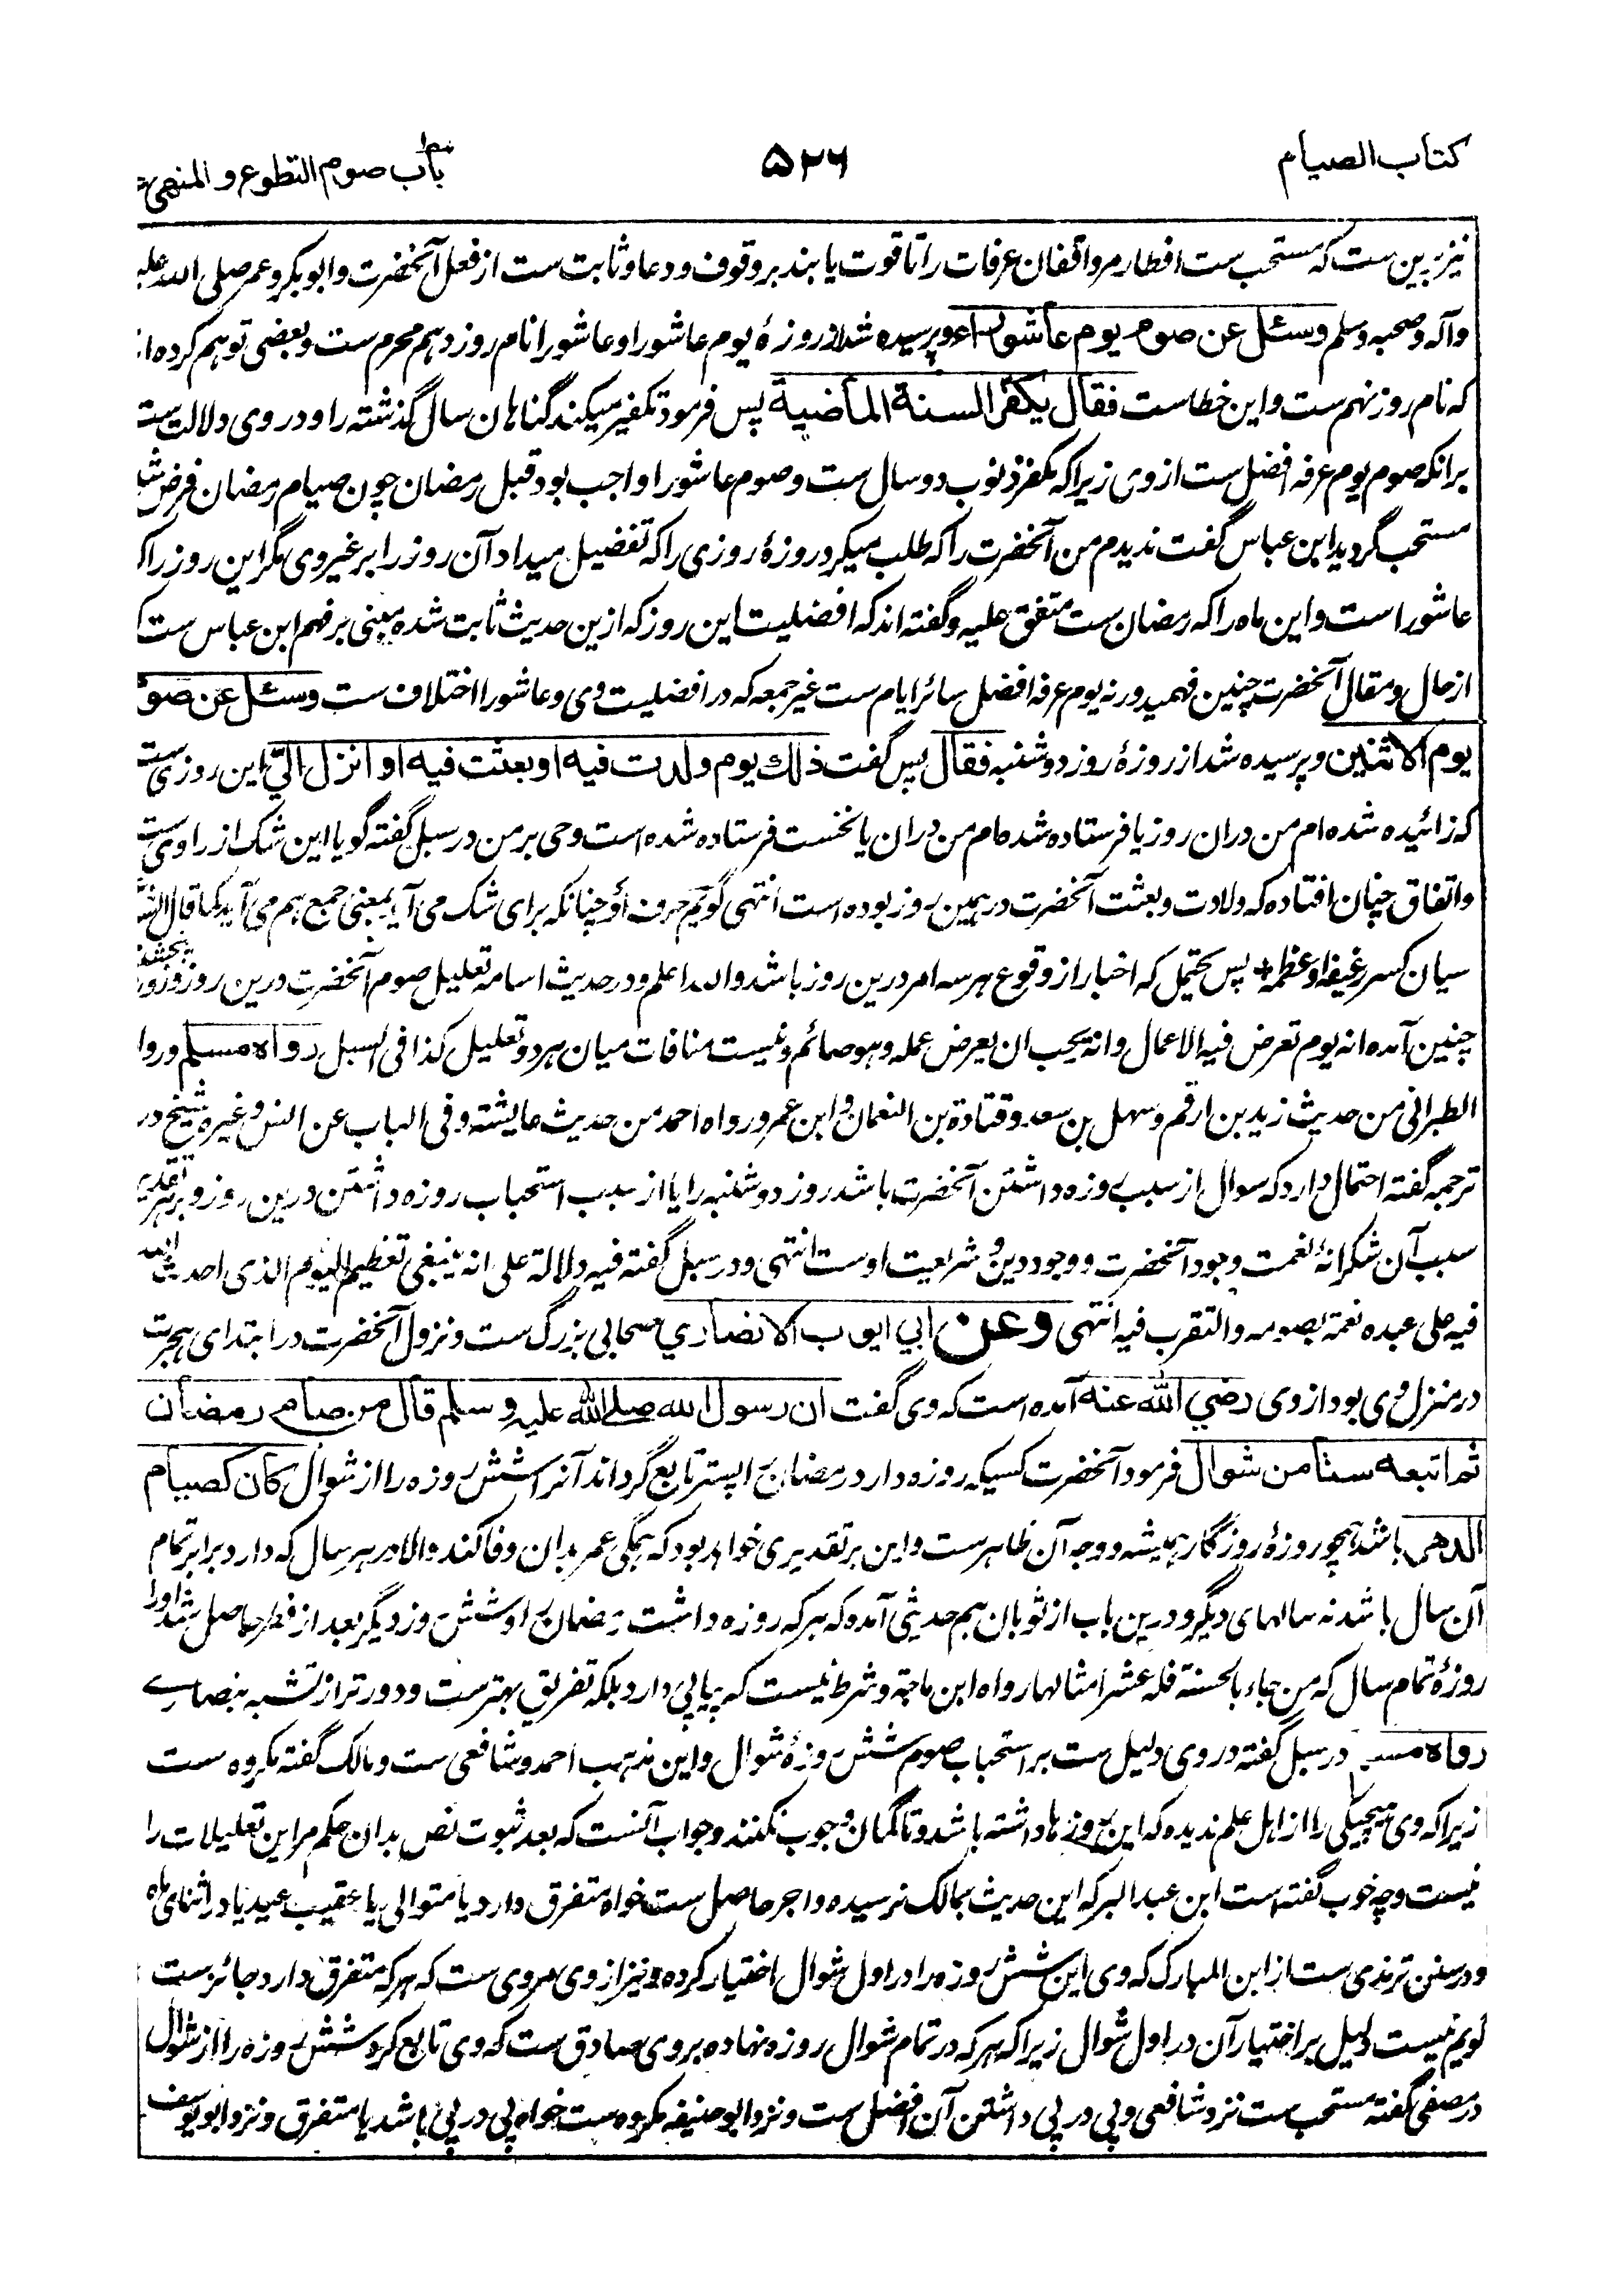 کتاب الصیام
۵۲۶
باب صوم التطوع و المنهی
نیز برین ست که مستحب ست افطار مر واقفان عرفات را تا قوت یابند بر وقوف و دعا و ثابت ست از فعل آنحضرت و ابوبکر و عمر صلی الله علیه
و آله و صحبه و سلم وسئل عن صوم یوم عاشوراء و پرسیده شد از روزهٔ یوم عاشورا و عاشورا نام روز دهم محرم ست و بعضی توهم کرده
که نام روز نهم ست و این خطاست فقال یکفر السنة الماضیة پس فرمود تکفیر میکند گناهان سال گذشته را و در وی دلالت ست
برانکه صوم یوم عرفه افضل ست از وی زیرا که مکفر ذنوب دو سال ست و صوم عاشورا واجب بود قبل رمضان چون صیام رمضان فرض شد
مستحب گردید ابن عباس گفت ندیدم من آنحضرت را که طلب میکرد روزهٔ روزی را که تفضیل میداد آن روز را بر غیر وی مگر این روز را که
عاشورا ست و این ماه را که رمضان ست متفق علیه و گفته اند که افضلیت این روز که ازین حدیث ثابت شده مبنی بر فهم ابن عباس ست که
از حال و مقال آنحضرت چنین فهمید ورنه یوم عرفه افضل سائر ایام ست غیر جمعه که در افضلیت وی و عاشورا اختلاف ست وسئل عن صوم
یوم الاثنین و پرسیده شد از روزهٔ روز دوشنبه فقال پس گفت ذلك یوم ولدت فیه او بعثت فیه او انزل الیّ این روزی ست
که زائیده شده ام من دران روز یا فرستاده شده ام من دران یا نخست فرستاده شده است وحی بر من در سبل گفته گویا این شک از راوی ست
و اتفاق چنان افتاده که ولادت و بعثت آنحضرت در همین روز بوده است انتهی گویم حرف أو چنانکه برای شک می آید بمعنی جمع هم می آید کما قال
سیان کسر رغیفه او عظمه + پس محتمل که اخبار از وقوع هر سه امر درین روز باشد و الله اعلم و در حدیث اسامه تعلیل صوم آنحضرت درین روز و روز پنجشنبه
چنین آمده انه یوم تعرض فیه الاعمال وانه یحب ان یعرض عمله وهو صائم و نیست منافات میان هر دو تعلیل کذا فی السبل رواه مسلم وروا
الطبرانی من حدیث زید بن ارقم وسهل بن سعد وقتادة بن النعمان وابن عمر ورواه احمد من حدیث عایشة وفی الباب عن انس وغیره شیخ در
ترجمه گفته احتمال دارد که سوال از سبب روزه داشتن آنحضرت باشد روز دوشنبه را یا از سبب استحباب روزه داشتن درین روز و بر هر تقدیر
سبب آن شکرانهٔ نعمت وجود آنحضرت و وجود دین و شریعت اوست انتهی و در سبل گفته فیه دلالة علی انه ینبغی تعظیم الیوم الذی احدث الله
فیه علی عبده نعمة بصومه والتقرب فیه انتهی وعن ابي ایوب الانصاري صحابی بزرگ ست و نزول آنحضرت در ابتدای هجرت
در منزل وی بود از وی رضي الله عنه آمده است که وی گفت ان رسول الله صلی الله علیه وسلم قال من صام رمضان
ثم اتبعه ستا من شوال فرمود آنحضرت کسیکه روزه دارد رمضان را پستر تابع گرداند آنرا شش روزه را از شوال کان کصیام
الدهر باشد همچو روزهٔ روزگار همیشه و وجه آن ظاهرست و این بر تقدیری خواهد بود که همگی عمر بدان وفا کند والا در هر سال که دارد برابر تمام
آن سال باشد نه سالهای دیگر و درین باب از ثوبان هم حدیثی آمده که هر که روزه داشت رمضان را و شش روز دیگر بعد از فطر حاصل شد او را
روزهٔ تمام سال که من جاء بالحسنة فله عشر امثالها رواه ابن ماجه و شرط نیست که پیاپی دارد بلکه تفریق بهترست و دورتر از تشبه بنصارے
رواه مسلم در سبل گفته در وی دلیل ست بر استحباب صوم شش روزهٔ شوال و این مذهب احمد و شافعی ست و مالک گفته مکروه ست
زیرا که وی هیچیکی را از اهل علم ندیده که این روزها داشته باشد و تا گمان وجوب نکنند و جواب آنست که بعد ثبوت نص بدان حکم مر این تعلیلات را
نیست و چه خوب گفته است ابن عبدالبر که این حدیث بمالک نرسیده و اجر حاصل ست خواه متفرق دارد یا متوالی یا عقیب عید یا در اثنای ماه
و در سنن ترمذی ست از ابن المبارک که وی این شش روزه را در اول شوال اختیار کرده و نیز از وی مروی ست که هر که متفرق دارد جائزست
گویم نیست دلیل بر اختیار آن در اول شوال زیرا که هر که در تمام شوال روزه نهاده بر وی صادق ست که وی تابع کرد شش روزه را از شوال
در مصفی گفته مستحب ست نزد شافعی و پی در پی داشتن آن افضل ست و نزد ابوحنیفه مکروه ست خواه پی در پی باشد یا متفرق و نزد ابویوسف